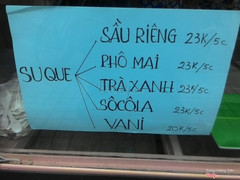 SẦU RIÊNG 23K/5C
PHÔ MAI 23K/5C
SU QUE TRÀ XANH 23K/5C
SÔCÔLA 23K/5C
VANI 20K/5C